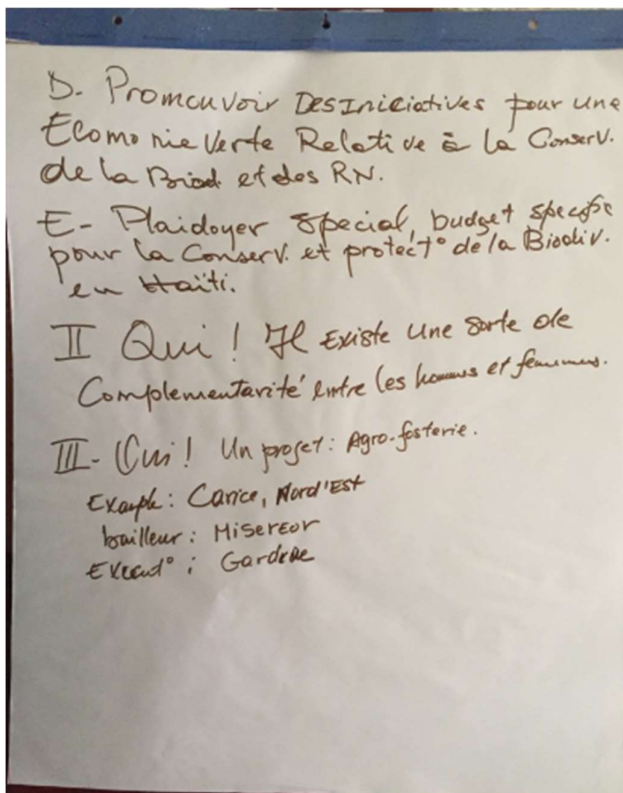 D- Promouvoir Des Iniciatives pour une
Économie Verte Relative à la Conserv.
de la Biod et des RN.
E- Plaidoyer Special, budget specific
pour la Conserv. et protect° de la Biodiv.
en Haïti.
II Oui! Il Existe une sorte de
Complementarité entre les hommes et femmes.
III- Oui! Un projet: Agro-fosterie.
Example: Carice, Nord'Est
bailleur: Misereor
Execut°: